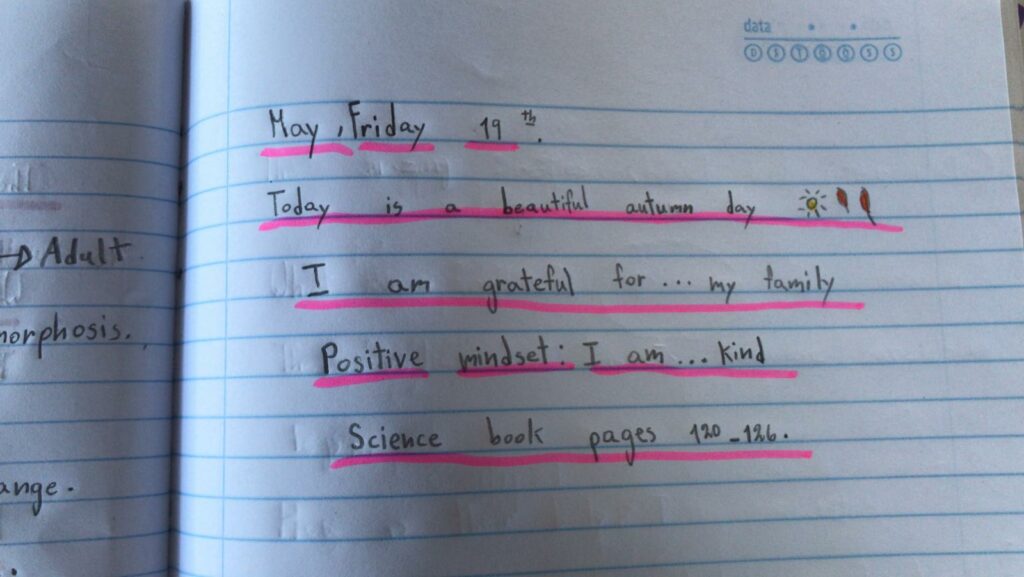 data
D S T Q Q S S
May, Friday 19th.
Today is a beautiful autumn day
I am grateful for... my family
Positive mindset: I am... kind
Science book pages 120-126.
→ Adult
morphosis.
ange.